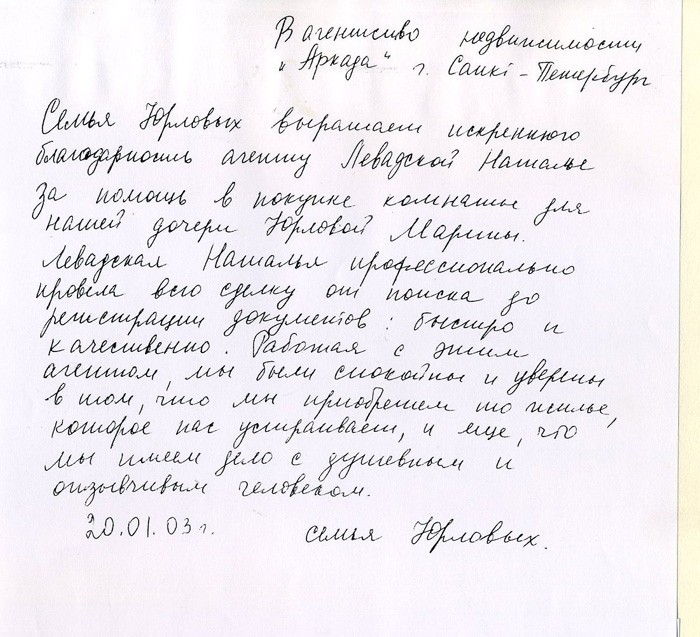 В агентство недвижимости
"Аркада" г. Санкт-Петербург
Семья Юрловых выражает искреннюю
благодарность агенту Левадской Наталье
за помощь в покупке комнаты для
нашей дочери Юрловой Марины.
Левадская Наталья профессионально
провела всю сделку от поиска до
регистрации документов: быстро и
качественно. Работая с этим
агентом, мы были спокойны и уверены
в том, что мы приобретем то жилье,
которое нас устраивает, и еще, что
мы имеем дело с душевным и
отзывчивым человеком.
20.01.03 г. семья Юрловых.